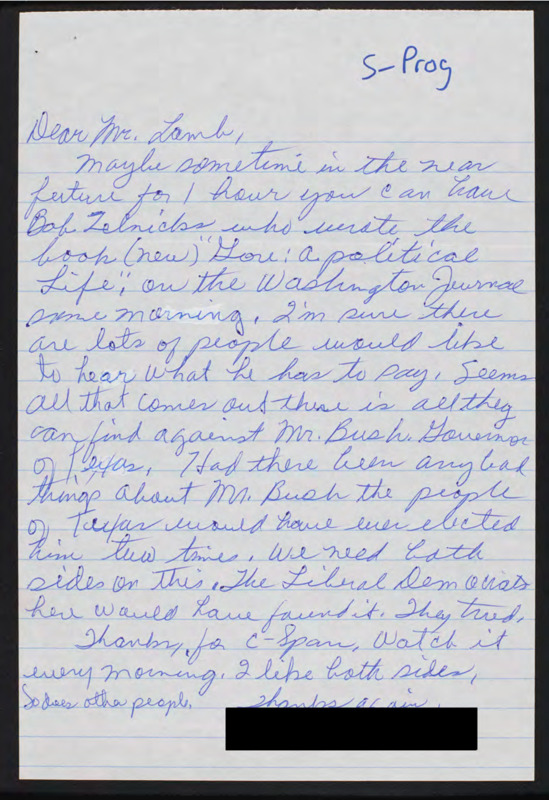 S-Prog
Dear Mr. Lamb,
Maybe sometime in the near
ferture for 1 hour you can have
Bob Zelnicks who wrote the
book (new) "Gore: a political
Life", on the Washington Journal
some morning. I'm sure there
are lots of people would like
to hear what he has to say. Seems
all that comes out there is all they
can find against Mr. Bush. Governor
of Texas. Had there been any bad
things about Mr. Bush the people
of Texas would have ever elected
him two times. We need both
sides on this. The Liberal Democrats
here would have found it. They tried.
Thanks, for C-Span, Watch it
every morning. I like both sides,
So does other people. Thanks again.